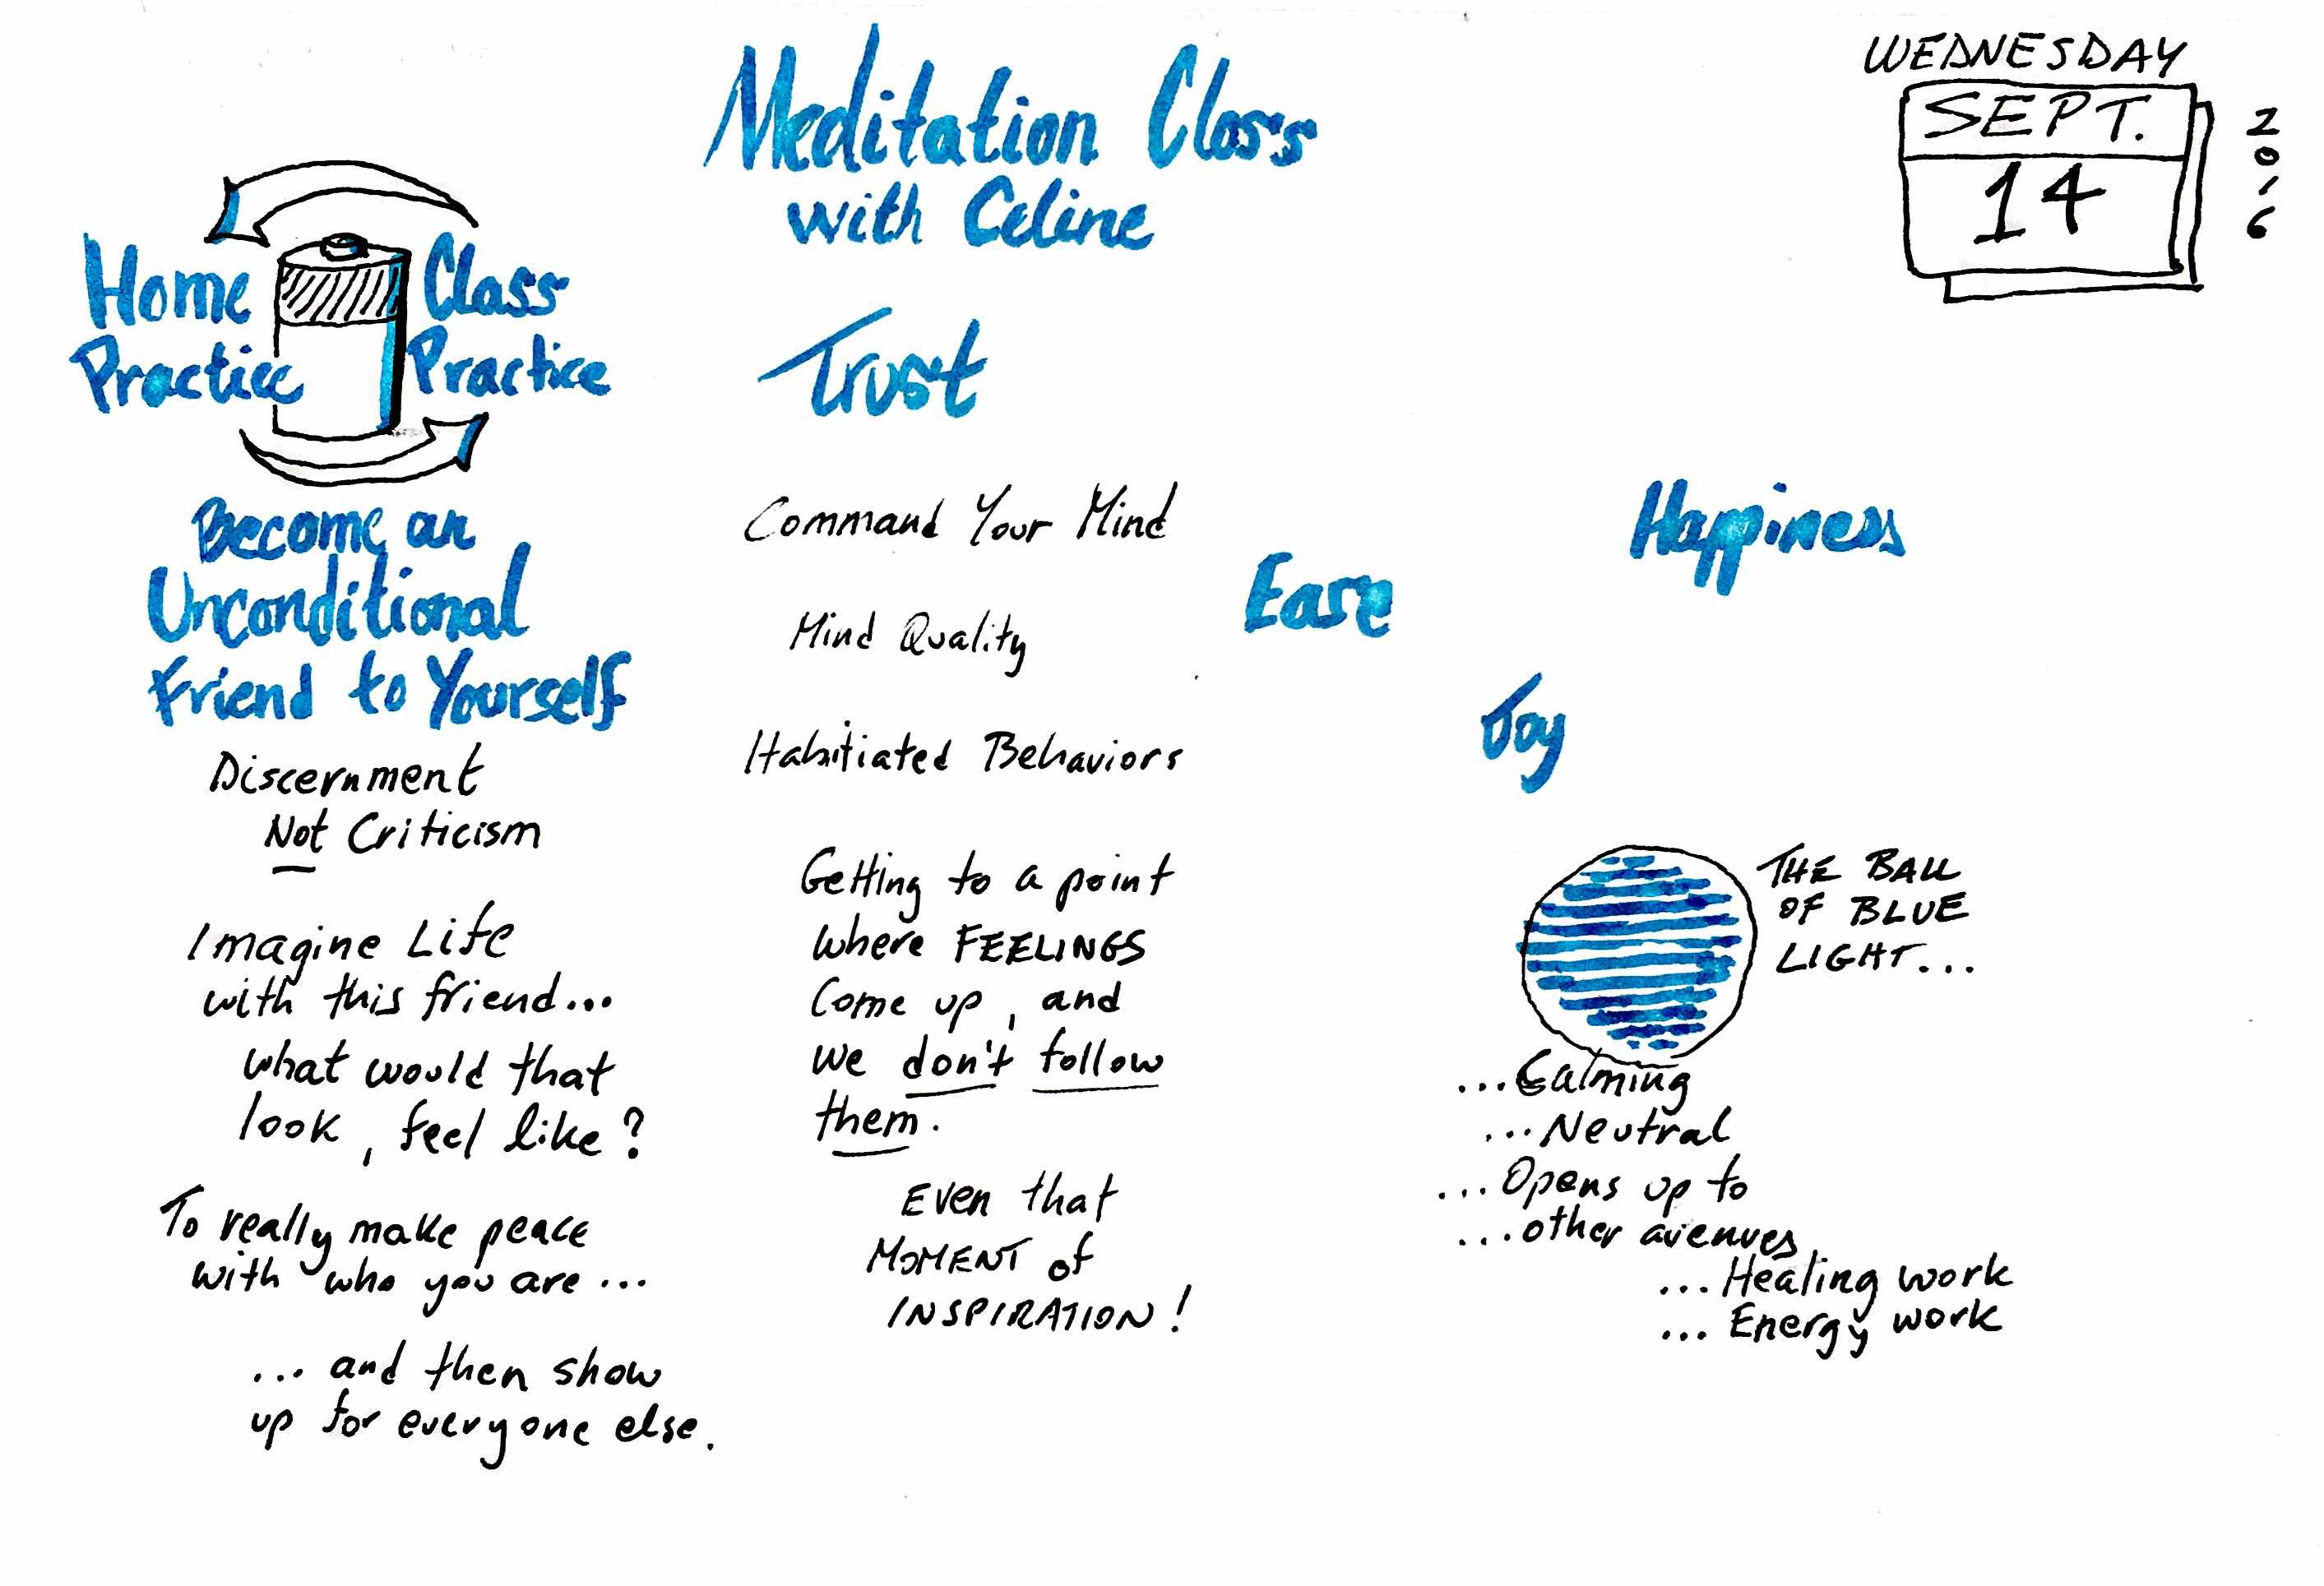 Meditation Class
with Celine
WEDNESDAY
SEPT.
14
2016
Home
Practice
Class
Practice
Become an
Unconditional
Friend to Yourself
Discernment
Not Criticism
Imagine Life
with this friend...
what would that
look, feel like?
To really make peace
with who you are ...
... and then show
up for everyone else.
Trust
Command Your Mind
Mind Quality
Habitiated Behaviors
Getting to a point
where FEELINGS
Come up, and
we don't follow
them.
Even that
MOMENT of
INSPIRATION!
Ease
Happiness
Joy
THE BALL
OF BLUE
LIGHT...
...Calming
...Neutral
...Opens up to
...other avenues
...Healing work
... Energy work